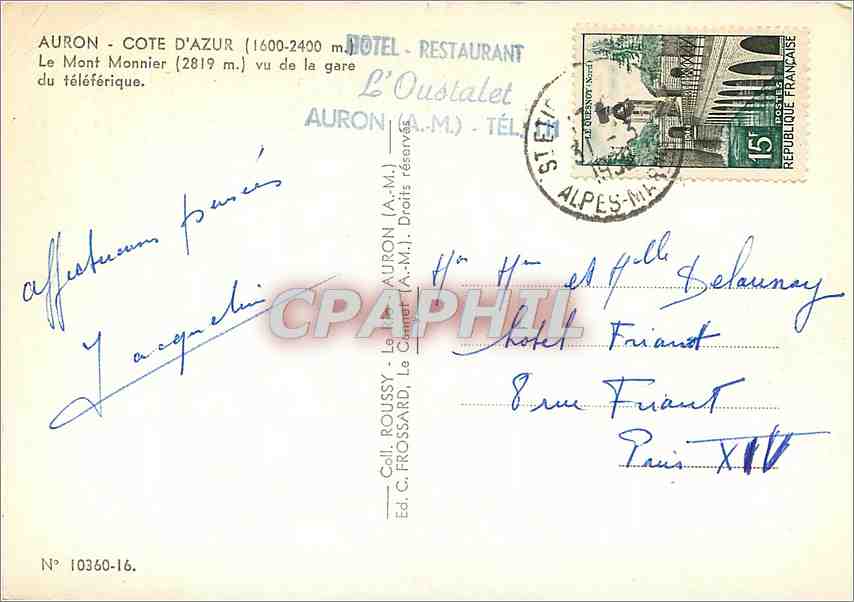 AURON - COTE D'AZUR (1600-2400 m.)
Le Mont Monnier (2819 m.) vu de la gare
du téléférique.
HOTEL - RESTAURANT
L'Oustalet
AURON (A.-M.) - TÉL.
LE QUESNOY (Nord)
15F
POSTES
REPUBLIQUE FRANÇAISE
ST ETI
ALPES-MAR
affectueuses pensées
Jacqueline
Coll. ROUSSY - Le AURON (A.-M.)
Ed. C. FROSSARD, Le Cannet (A.-M.). Droits réservés
CPAPHIL
Mr Mme et Melle Delaunay
hotel Friant
8 rue Friant
Paris XIV
N° 10360-16.